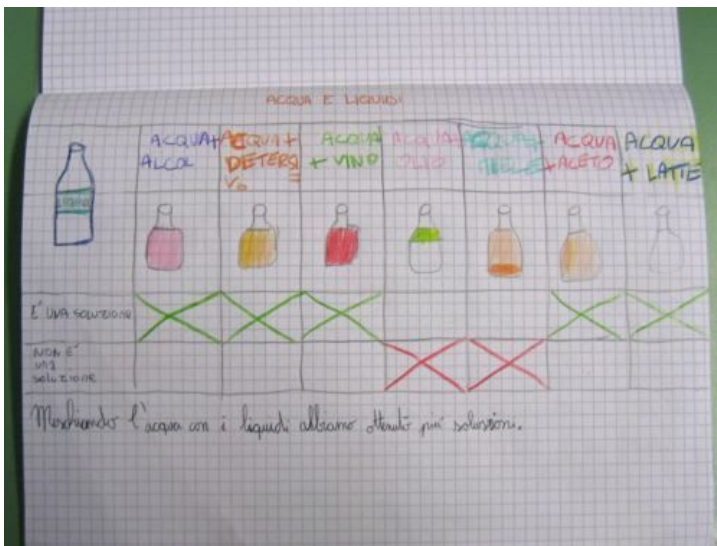 ACQUA E LIQUIDI
LIQUIDI
ACQUA+ ALCOL
ACQUA + DETERSIVO
ACQUA + VINO
ACQUA+ OLIO
ACQUA+ MIELE
ACQUA +ACETO
ACQUA + LATTE
E' UNA SOLUZIONE
NON E'
UNA
SOLUZIONE
Mischiando l'acqua con i liquidi abbiamo ottenuto più soluzioni.